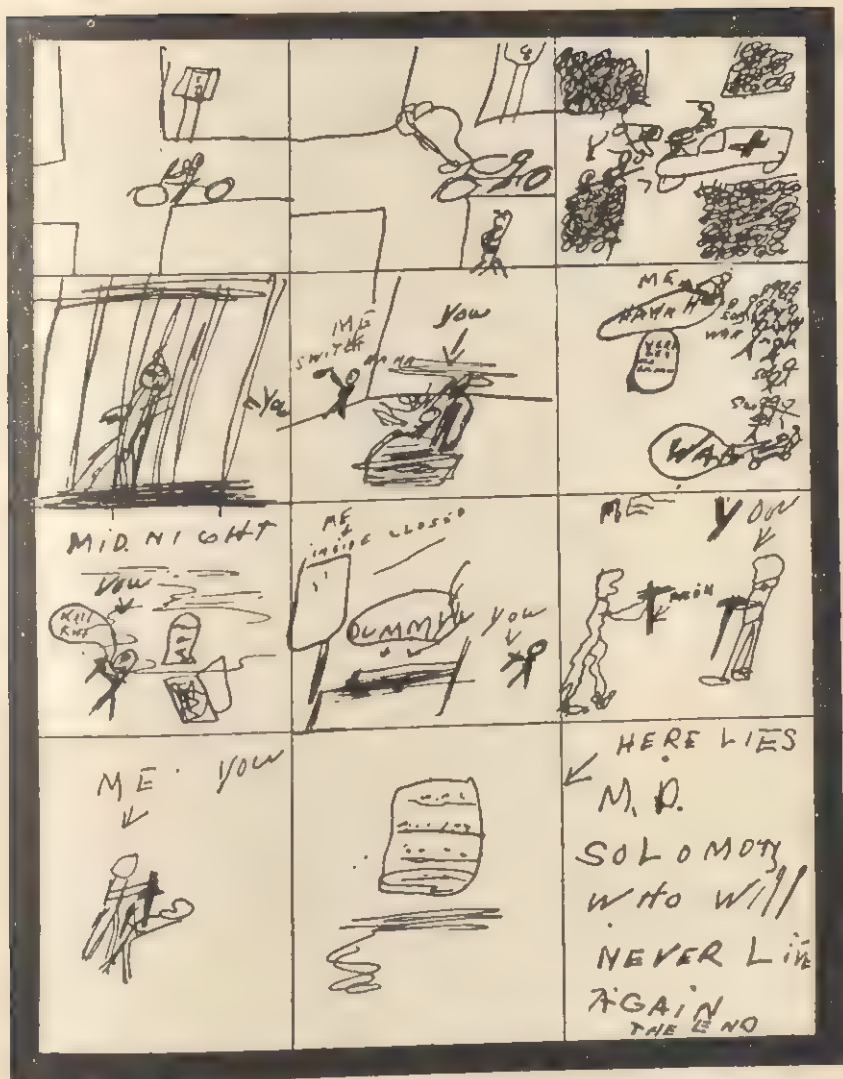 8
YOU
ME
SWITCH
YOU
ME
HAHA H
WAA
WAA
MIDNIGHT
YOU
KILL
KILL
ME
INSIDE CLOSED
DUMMY
YOU
ME
YOU
ME
YOU
HERE LIES
M.D.
SOLOMON
WHO WILL
NEVER LIVE
AGAIN
THE END